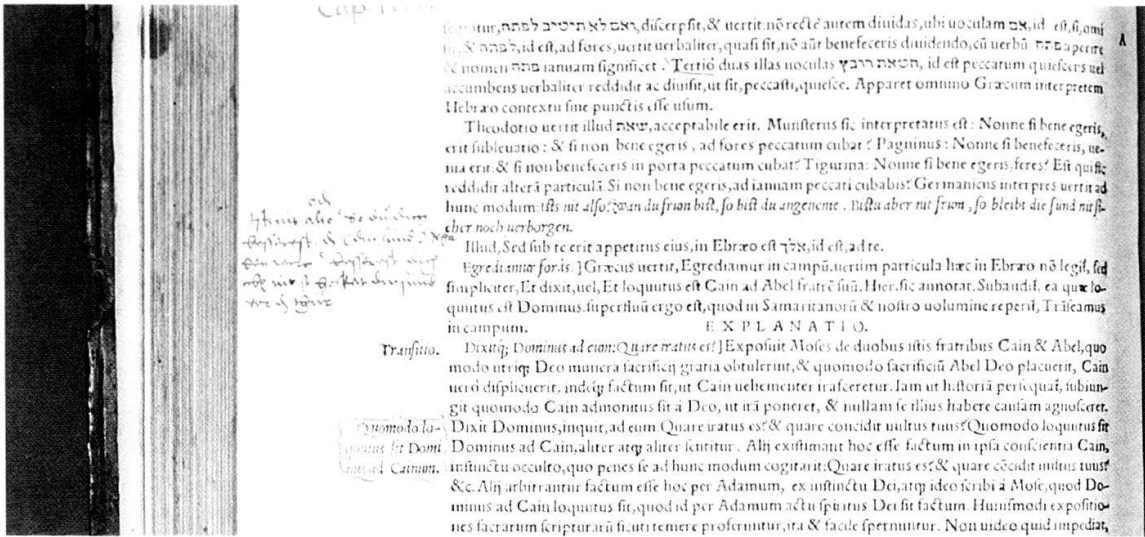 Cap
ואם לא תיטיב לפתח, discerpsit, & uertit. nō rectè autem diuidas, ubi uoculam אם, id est, si, omi
& לפתח, id est, ad fores, uertit uerbaliter, quasi sit, nō aūt benefeceris diuidendo, cū uerbū פתח aperire
& nomen פתח ianuam significet. Tertiò duas illas uoculas חטאת רובץ, id est peccatum quiescens uel
accumbens uerbaliter reddidit ac diuisit, ut sit, peccasti, quiesce. Apparet omnino Græcum interpretem
Hebræo contextu sine punctis esse usum.
Theodotio uertit illud שאת, acceptabile erit. Munsterus sic interpretatus est: Nonne si bene egeris,
erit subleuatio: & si non bene egeris, ad fores peccatum cubat? Pagninus: Nonne si benefeceris, ue-
nia erit: & si non benefeceris in porta peccatum cubat? Tigurina: Nonne si bene egeris, feres? Est qui sic
reddidit alterā particulā. Si non bene egeris, ad ianuam peccati cubabis? Germanicus interpres uertit ad
hunc modum: Ists nit also? wan du frum bist, so bist du angeneme. Bistu aber nit frum, so bleibt die sund nit si-
cher noch uerborgen.
Illud, Sed sub te erit appetitus eius, in Ebræo est אלך, id est, ad te.
Egrediamur foràs.] Græcus uertit, Egrediamur in campū. uerùm particula hæc in Ebræo nō legit, sed
simpliciter, Et dixit, uel, Et loquutus est Cain ad Abel fratrē suū. Hier. sic annotat. Subaudit, ea quæ lo-
quutus est Dominus. superfluū ergo est, quod in Samaritanorū & nostro uolumine reperit, Trāseamus
in campum. EXPLANATIO.
Transitio.
Dixitq; Dominus ad eum: Quare iratus es?] Exposuit Moses de duobus istis fratribus Cain & Abel, quo
modo utriq; Deo munera sacrificij gratia obtulerint, & quomodo sacrificiū Abel Deo placuerit, Cain
uerò displicuerit, indeq; factum sit, ut Cain uehementer irasceretur. Iam ut historiā persequat, subiun-
git quomodo Cain admonitus sit à Deo, ut irā poneret, & nullam se illius habere causam agnosceret.
Quomodo lo-
quutus sit Domi
nus ad Cainum.
Dixit Dominus, inquit, ad eum: Quare iratus es? & quare concidit uultus tuus? Quomodo loquutus sit
Dominus ad Cain, aliter atq; aliter sentitur. Alij existimant hoc esse factum in ipsa conscientia Cain,
instinctu occulto, quo penes se ad hunc modum cogitarit: Quare iratus es? & quare cōcidit uultus tuus?
&c. Alij arbitrantur factum esse hoc per Adamum, ex instinctu Dei, atq; ideo scribi à Mose, quod Do-
minus ad Cain loquutus sit, quod id per Adamum actu spiritus Dei sit factum. Huiusmodi expositio-
nes sacrarum scripturarū sicuti temere proferuntur, ita & facile spernuntur. Non uideo quid impediat,
A